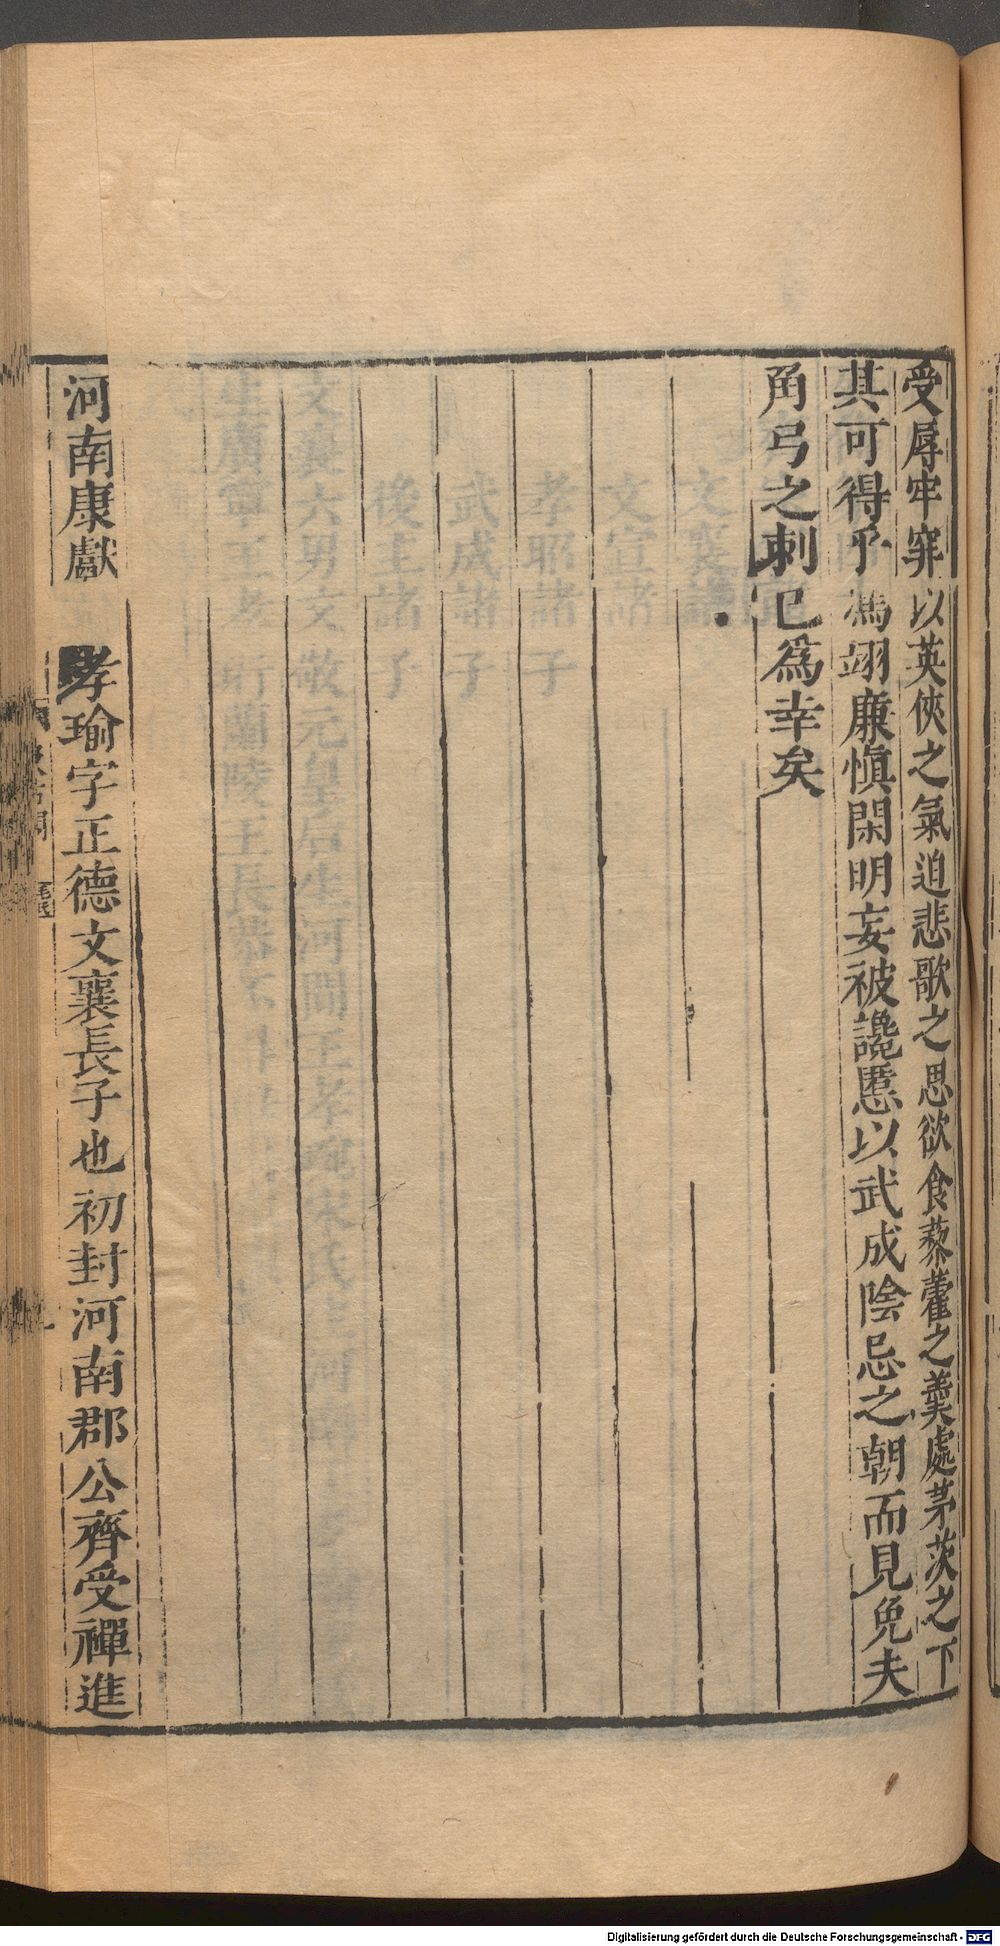 受辱牢穽以英俠之氣迫悲歌之思欲食藜藿之羹處茅茨之下
其可得乎馮翊廉慎閑明妄被讒慝以武成陰忌之朝而見免夫
角弓之刺已爲幸矣
河南康獻 孝瑜字正德文襄長子也初封河南郡公齊受禪進
Digitalisierung gefördert durch die Deutsche Forschungsgemeinschaft - DFG